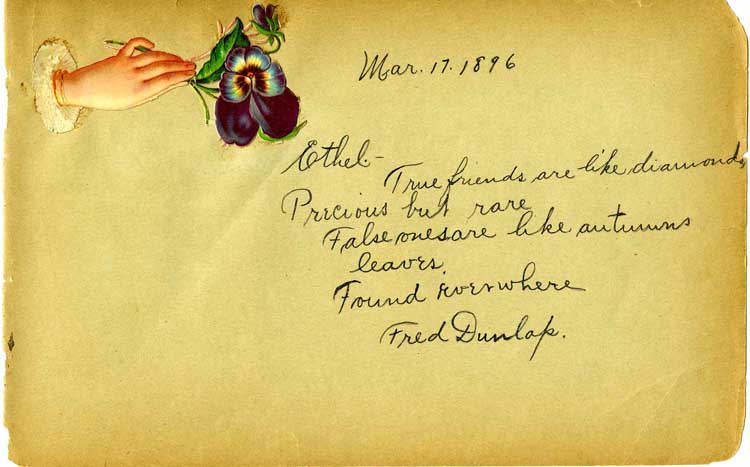 Mar. 17. 1896
Ethel:-
True friends are like diamonds
Precious but rare
False ones are like autumns
leaves.
Found everwhere
Fred Dunlap.